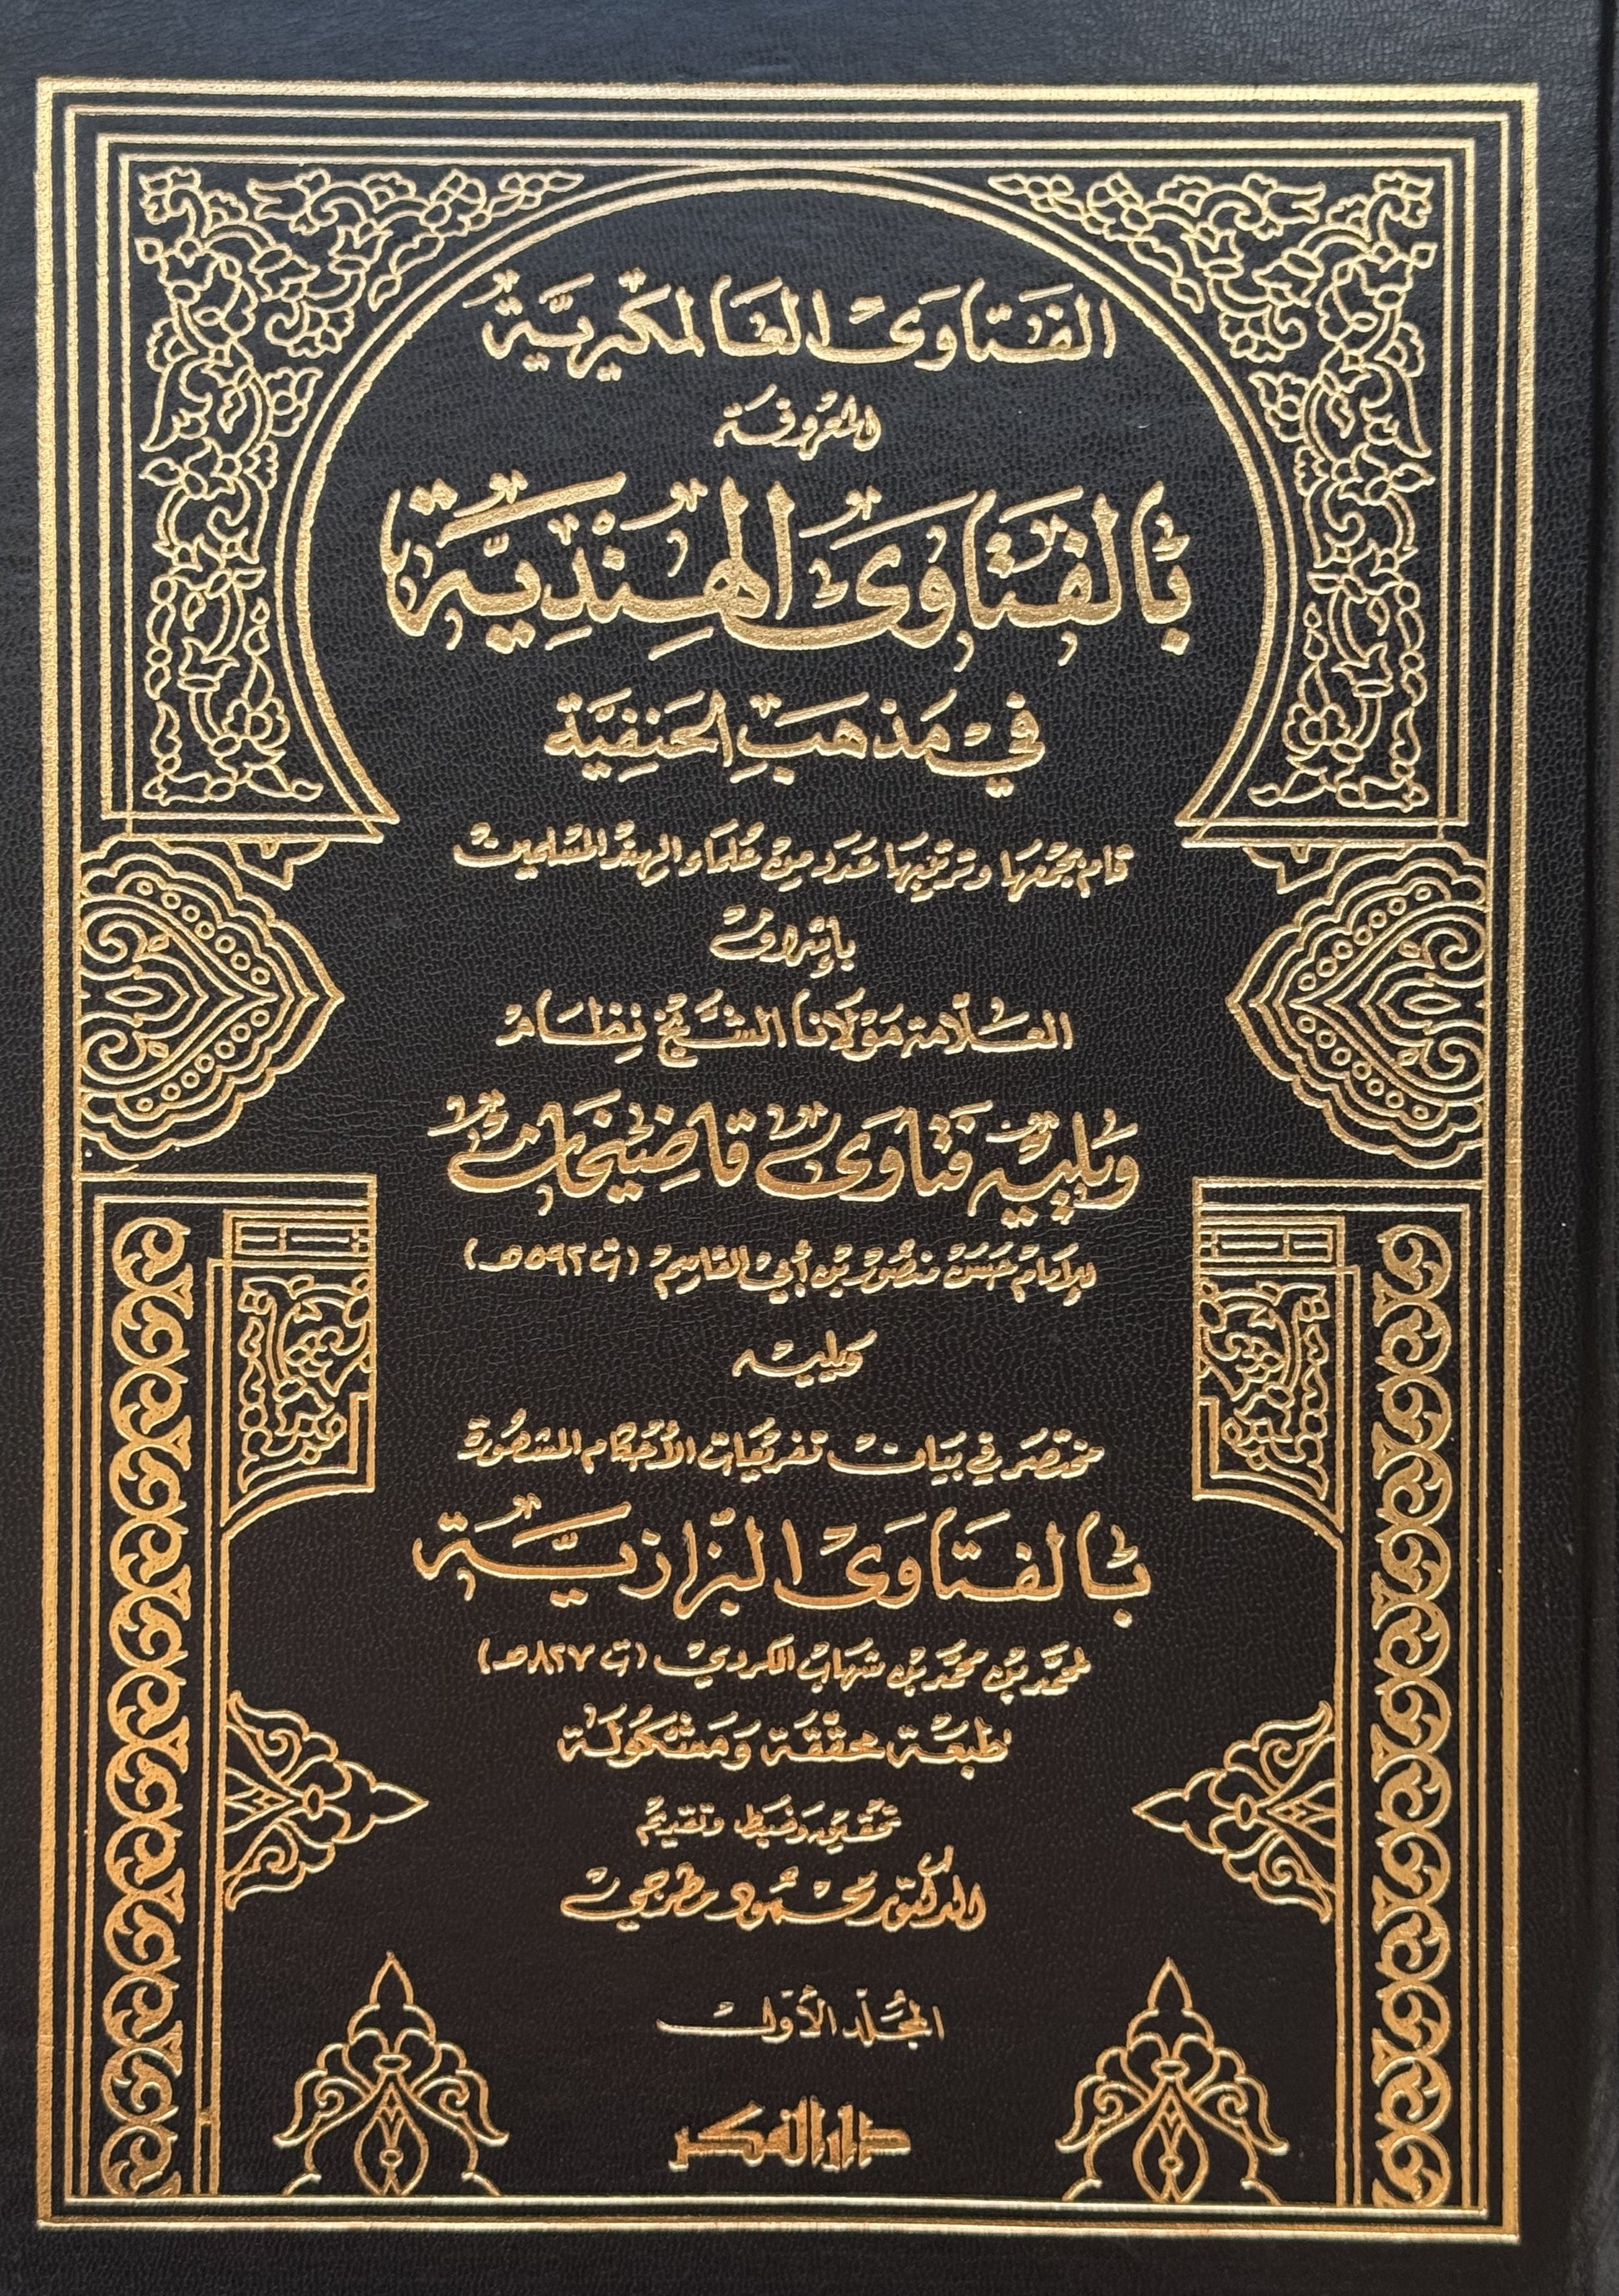 الفَتَاوَى العَالمكِيريَّة
المعْرُوفَة
بالفَتَاوَى الهِنْدِيَّة
فِي مَذهَبِ الحَنَفِيَّة
قام بجمعها وترتيبها عَدَد مِن عُلمَاء الهِند المسْلمين
بإشراف
العَلّامة مَوْلَانا الشَّيخ نِظَام
وَيليْه فتاوَى قاضيخان
للإمَام حَسَن منصُور بن أبي القَاسِم (ت ٥٩٢هـ)
وَيليه
مختصَر في بيَان تفريعَات الأحكام المشهُورة
بالفتَاوَى البزازيَّة
لمحمّد بن محمّد بن شهاب الكردي (ت ٨٢٧هـ)
طبعَة محققَة وَمَشكولَة
تحقيق وضبط وتقديم
الدكتور محمُود مطرجي
المجلّد الأوّل
دار الفكر